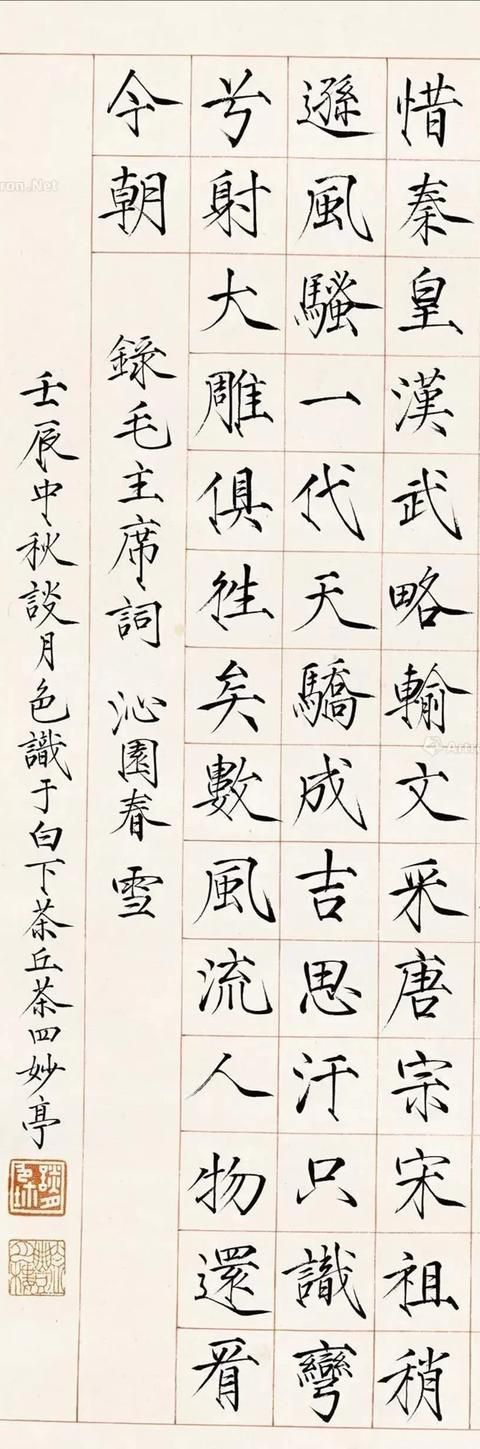 惜秦皇漢武略輸文采唐宗宋祖稍
遜風騷一代天驕成吉思汗只識彎
兮射大雕俱徃矣數風流人物還看
今朝
錄毛主席詞 沁園春 雪
壬辰中秋談月色識于白下茶丘茶四妙亭
tron.Net